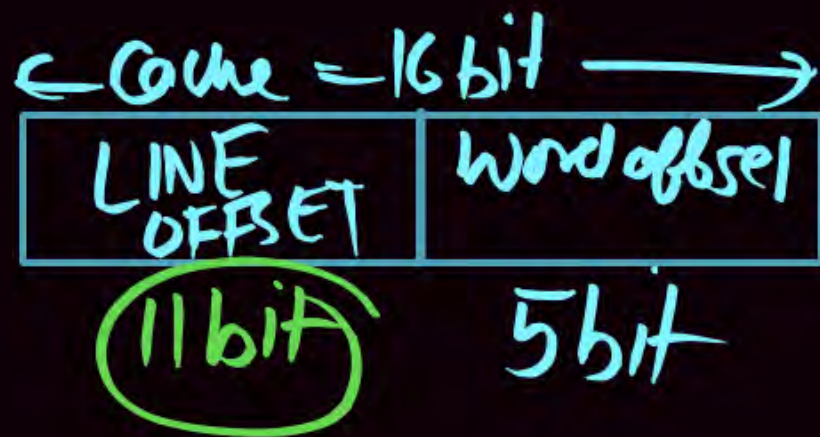 ← Cache = 16 bit →
LINE OFFSET
Word offset
11 bit
5 bit